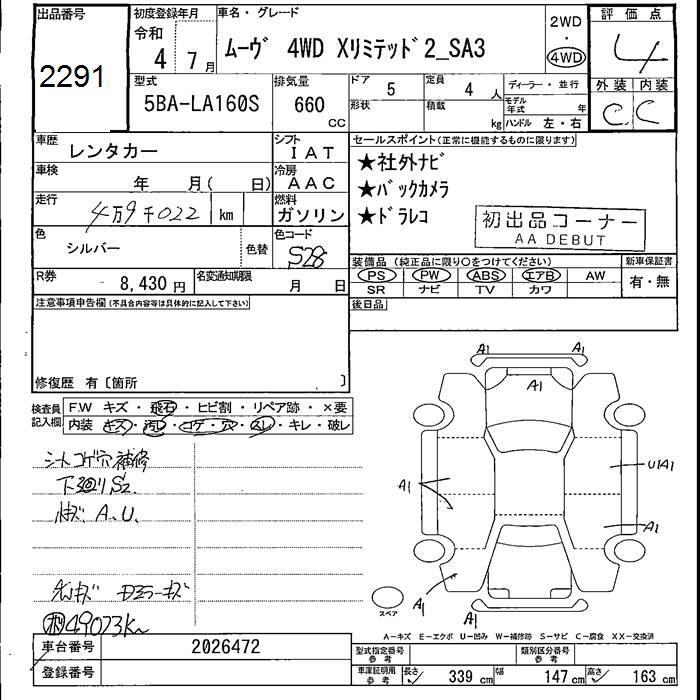 出品番号
2291
初度登録年月
令和
4年7月
車名・グレード
ムーヴ 4WD Xリミテッド2_SA3
2WD
・
4WD
評価点
4
外装 内装
C C
型式
5BA-LA160S
排気量
660
CC
ドア
5
形状
定員
4人
積載
kg
ディーラー・並行
モデル年式 年
ハンドル 左・右
車歴
レンタカー
シフト
IAT
車検
年 月( 日)
冷房
AAC
走行
4万9千022 km
燃料
ガソリン
色
シルバー
色替
色コード
S28
R券
8,430円
名変通知期限
月 日
セールスポイント(正常に機能するものに限ります)
★社外ナビ
★バックカメラ
★ドラレコ
初出品コーナー
AA DEBUT
装備品(純正品に限り○をつけてください)
新車保証書
PS PW ABS エアB AW
SR ナビ TV カワ
有・無
後日品
注意事項申告欄(不具合内容等は具体的に記入して下さい)
修復歴 有〔箇所 〕
検査員記入欄
F.W キズ・飛石・ヒビ割・リペア跡・×要
内装 キズ・汚レ・コゲ・穴・スレ・キレ・破レ
シートコゲ穴補修
下廻りS2.
小キズ A、U、
49023K
A1 A1
A1
A1
U1A1
A1
A1
A1
スペア
A−キズ E−エクボ U−凹み W−補修跡 S−サビ C−腐食 XX−交換済
車台番号
2026472
登録番号
型式指定番号
参考
類別区分番号
参考
車庫証明用
参考
長さ 339 cm 幅 147 cm 高さ 163 cm